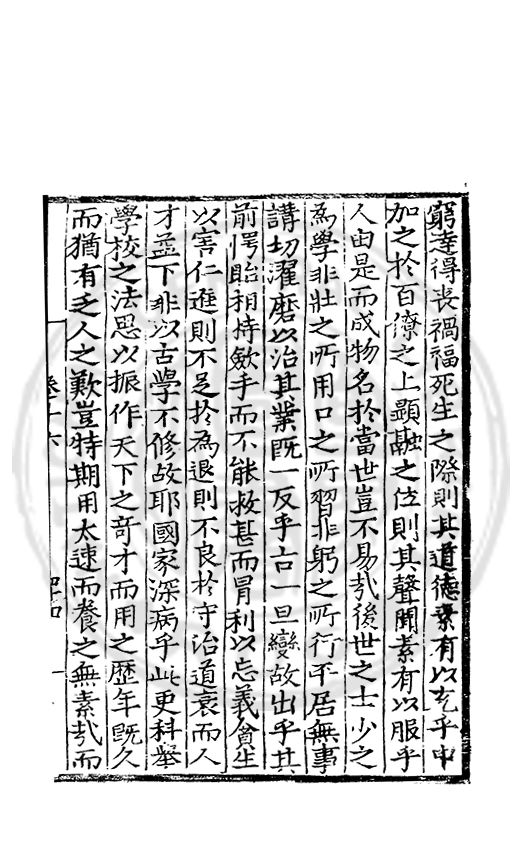 窮達得喪禍福死生之際則其道德素有以充乎中
加之於百僚之上顯融之位則其聲聞素有以服乎
人由是而成物名於當世豈不易哉後世之士少之
為學非壯之所用口之所習非躬之所行平居無事
講切濯磨以治其業既一反乎古一旦變故出乎其
前愕眙相持斂手而不能救甚而冐利以忘義貪生
以害仁進則不足於為退則不良於守治道衰而人
才益下非以古學不修故耶國家深病乎此更科舉
學校之法思以振作天下之竒才而用之歷年既久
而猶有乏人之歎豈特期用太速而養之無素哉而
卷十六